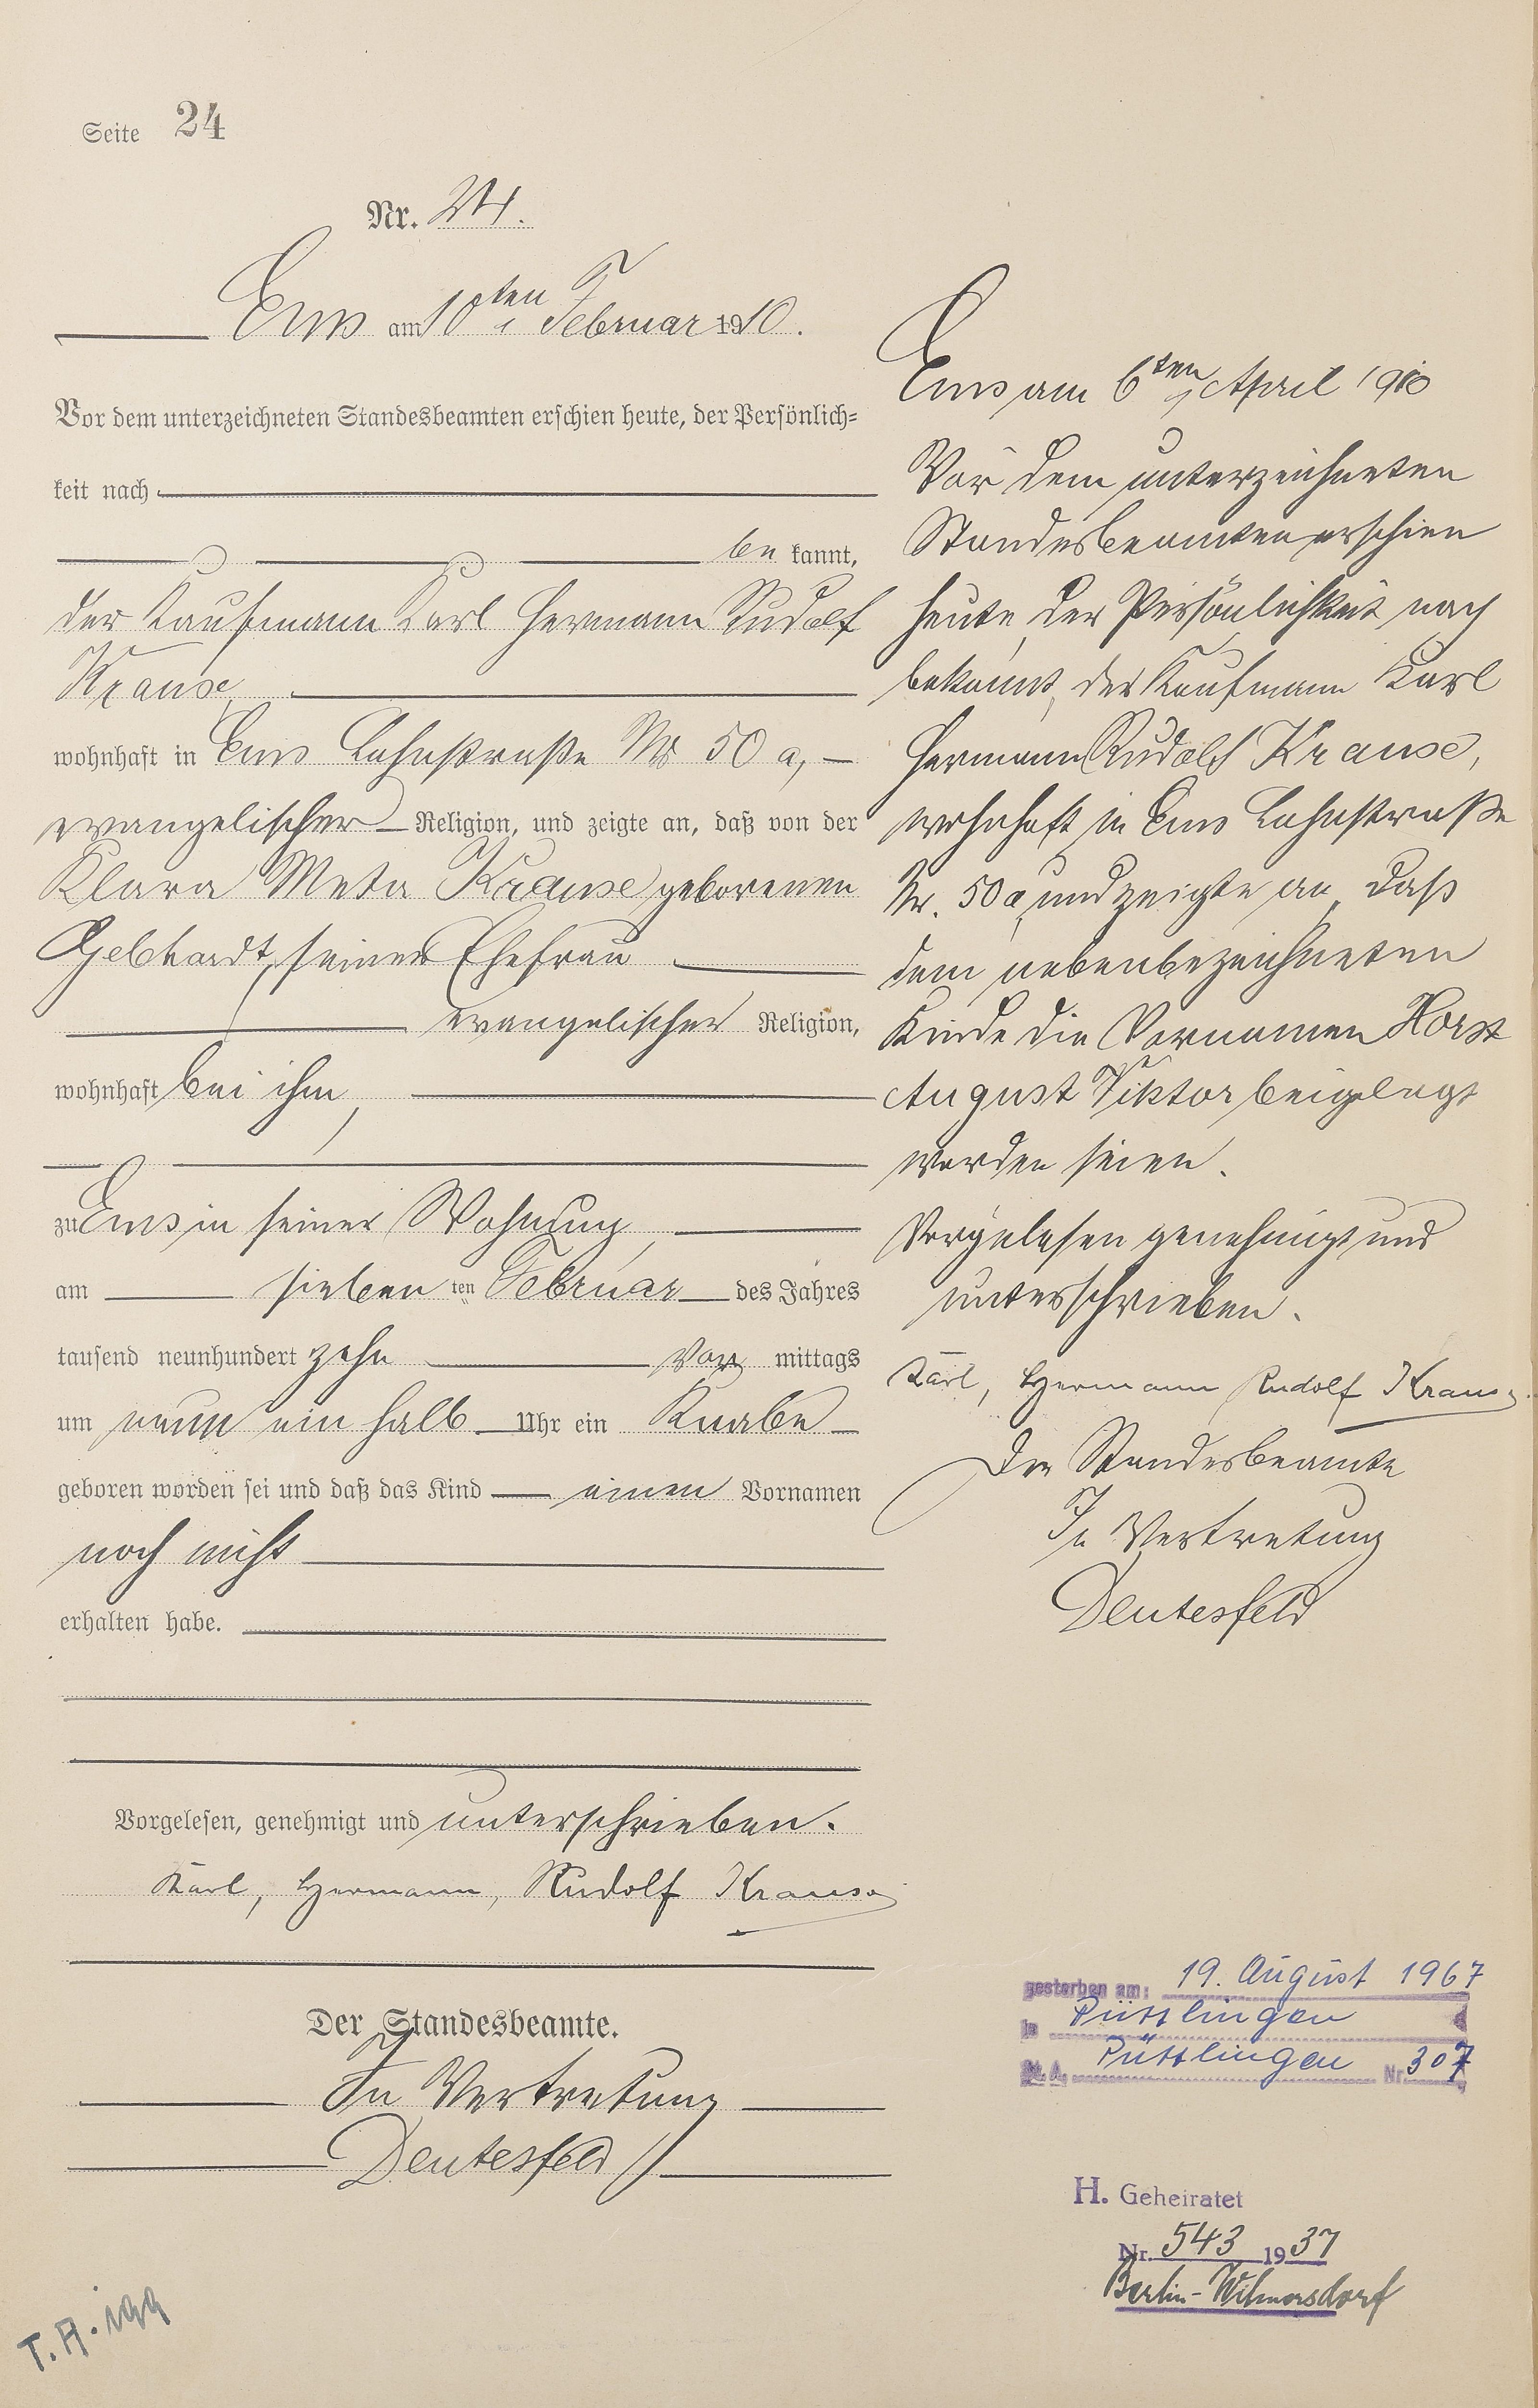 Seite 24
Nr. 24.
Ems am 10ten Februar 1910.
Vor dem unterzeichneten Standesbeamten erschien heute, der Persönlich-
keit nach
be kannt,
der Kaufmann Karl Hermann Rudolf
Krause,
wohnhaft in Ems Lahnstraße Nr 50 a,
evangelischer Religion, und zeigte an, daß von der
Klara Meta Krause geborenen
Gebhardt, seiner Ehefrau
evangelischer Religion,
wohnhaft bei ihm,
zu Ems in seiner Wohnung,
am sieben ten Februar des Jahres
tausend neunhundert zehn Vor mittags
um neun ein halb Uhr ein Knabe
geboren worden sei und daß das Kind einen Vornamen
noch nicht
erhalten habe.
Vorgelesen, genehmigt und unterschrieben.
Karl, Hermann, Rudolf Krause
Der Standesbeamte.
In Vertretung
Deutesfeld
Ems am 6ten April 1910
Vor dem unterzeichneten
Standesbeamten erschien
heute, der Persönlichkeit nach
bekannt, der Kaufmann Karl
Hermann Rudolf Krause,
wohnhaft in Ems Lahnstraße
Nr. 50a, und zeigte an, daß
dem nebenbezeichneten
Kinde die Vornamen Horst
August Viktor beigelegt
worden seien.
Vorgelesen genehmigt und
unterschrieben.
Karl, Hermann Rudolf Krause.
Der Standesbeamte
In Vertretung
Deutesfeld
gestorben am: 19. August 1967
in Püttlingen
St. A. Püttlingen Nr. 307
H. Geheiratet
Nr. 543 1937
Berlin-Wilmersdorf
T. A. 199